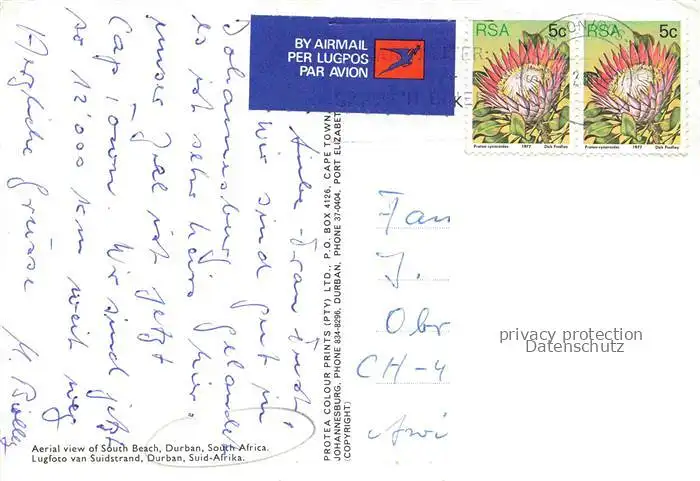 BY AIRMAIL
PER LUGPOS
PAR AVION
RSA 5c
RSA 5c
Protea cynaroides 1977 Dick Findlay
Protea cynaroides 1977 Dick Findlay
Liebe Frau
Wir sind gut in
Johannesburg gelandet
es ist sehr heiss hier.
unser Ziel ist jetzt
Cap Town. Wir sind jetzt
so 12'000 km weit weg
Herzliche Grüsse
PROTEA COLOUR PRINTS (PTY) LTD., P.O. BOX 4126, CAPE TOWN,
JOHANNESBURG, PHONE 834-8296, DURBAN, PHONE 37-0404, PORT ELIZABET
(COPYRIGHT)
J.
Obr
CH-4
privacy protection
Datenschutz
Aerial view of South Beach, Durban, South Africa.
Lugfoto van Suidstrand, Durban, Suid-Afrika.